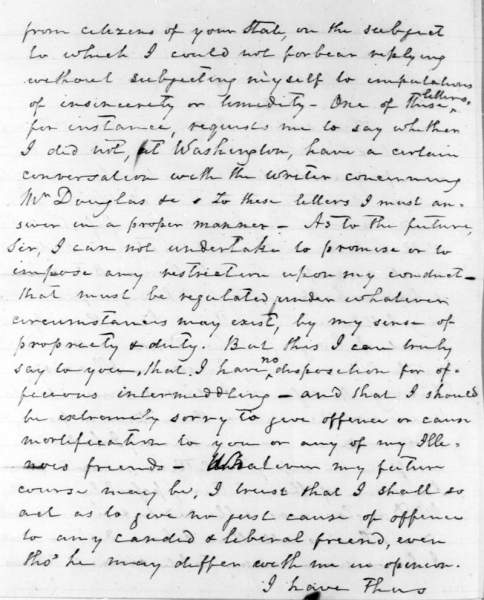 from citizens of your State, on the subject
to which I could not forbear replying
without subjecting myself to imputations
of insincerity or timidity - One of these letters,
for instance, requests me to say whether
I did not, at Washington, have a certain
conversation with the writer concerning
Mr Douglas &c & to these letters I must an-
swer in a proper manner - As to the future,
Sir, I can not undertake to promise or to
impose any restriction upon my conduct -
that must be regulated, under whatever
circumstances may exist, by my sense of
propriety & duty. But this I can truly
say to you, that I have no disposition for of-
ficious intermeddling - and that I should
be extremely sorry to give offence or cause
mortification to you or any of my Illi-
nois friends - Whatever my future
course may be, I trust that I shall so
act as to give no just cause of offence
to any candid & liberal friend, even
tho' he may differ with me in opinion.
I have Thus